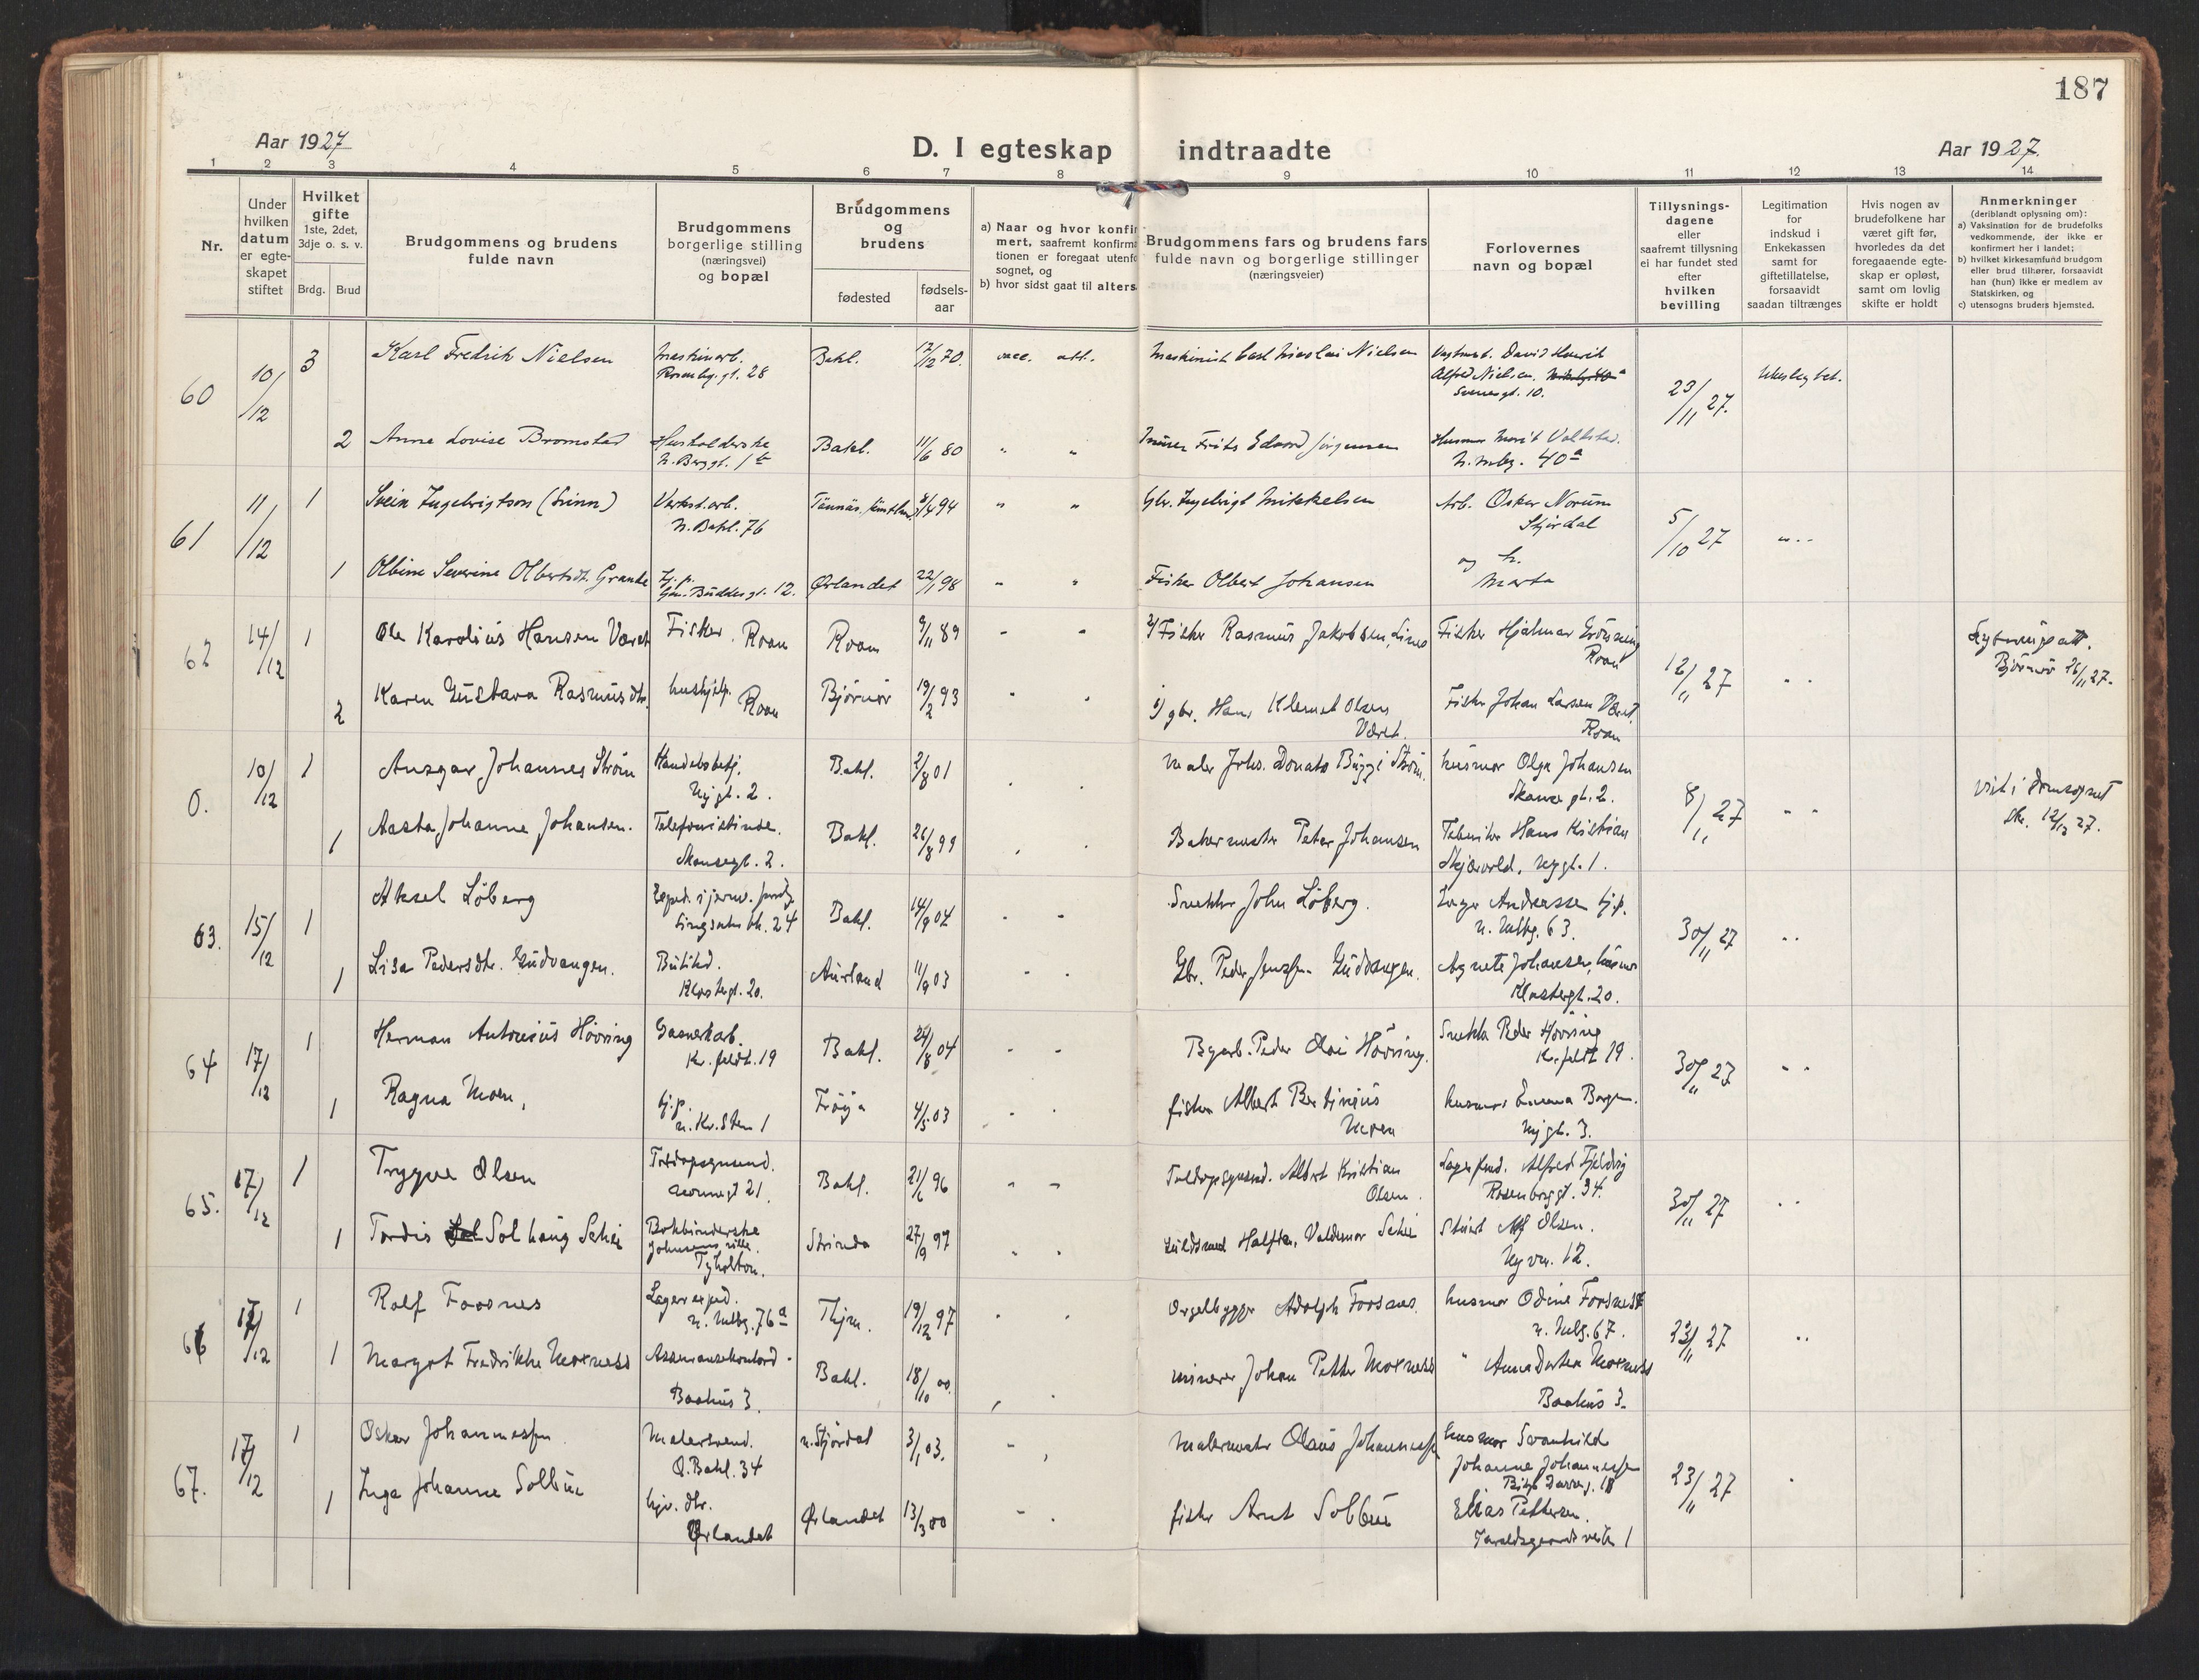 187
Aar 1927
D. I egteskap indtraadte
Aar 1927.
1 2 3 4 5 6 7 8 9 10 11 12 13 14
Nr.
Under
hvilken
datum
er egte-
skapet
stiftet
Hvilket
gifte
1ste, 2det,
3dje o. s. v.
Brdg. Brud
Brudgommens og brudens
fulde navn
Brudgommens
borgerlige stilling
(næringsvei)
og bopæl
Brudgommens
og
brudens
fødested
fødsels-
aar
a) Naar og hvor konfir
mert, saafremt konfirma
tionen er foregaat utenfo
sognet, og
b) hvor sidst gaat til alters.
Brudgommens fars og brudens fars
fulde navn og borgerlige stillinger
(næringsveier)
Forlovernes
navn og bopæl
Tillysnings-
dagene
eller
saafremt tillysning
ei har fundet sted
efter
hvilken
bevilling
Legitimation
for
indskud i
Enkekassen
samt for
giftetillatelse,
forsaavidt
saadan tiltrænges
Hvis nogen av
brudefolkene har
været gift før,
hvorledes da det
foregaaende egte-
skap er opløst,
samt om lovlig
skifte er holdt
Anmerkninger
(deriblandt oplysning om):
a) Vaksination for de brudefolks
vedkommende, der ikke er
konfirmert her i landet;
b) hvilket kirkesamfund brudgom
eller brud tilhører, forsaavidt
han (hun) ikke er medlem av
Statskirken, og
c) utensogns bruders hjemsted.
60 10/12 3 Karl Fredrik Nielsen Maskinarb. Bakl. 12/12 70. vacc. att. Maskinist Carl Nicolai Nielsen David
Rosenbg. gt. 28 Alfred Nielsen.
Sverresgt. 10. 23/11 27.
2 Anne Lovise Bromstad Husholderske Bakl. 11/6 80 " " Murer Frits Edvard Jørgensen Husmor Marit
N. Berggt. 1b N. Mbg. 40a
61 11/12 1 Svein Ingebrigtson (Finn) Verkst.arb. 94 " " Gbr. Ingebrigt Mikkelsen Arb. Oskar Norum
N. Bakl. 76 Stjørdal 5/10 27
1 Olbine Severine Olbertsdt. Grande Tj.p. Ørlandet 22/1 98 " " Fisker Olbert Johansen og h.
Buddes gt. 12. Marta
62 14/12 1 Ole Karolius Hansen Været Fisker. Roan Roan 9/11 89 - - 2/ Fisker Rasmus Jakobsen, Fisker Hjalmar
Roan 12/11 27 Bjørnør 26/11 27.
2 Karen Gustava Rasmusdtr. hushjelp. Roan Bjørnør 19/2 93 1/ gbr. Hans Klemet Olsen Fisker Johan Larsen Været,
Været. Roan
0. 10/12 1 Ansgar Johannes Strøm Handelsbetj. Bakl. 2/8 01 Maler Johs. Donato Strøm. husmor Olga Johansen
Nygt. 2. Skansegt. 2. 8/11 27 viet i Domsognet
12/12 27.
1 Aasta Johanne Johansen. Telefonistinde. Bakl. 26/8 99 Bakermester Peter Johansen Tekniker Hans Kristian
Skansegt. 2. Skjærvold, Nygt. 1.
63. 15/12 1 Aksel Løberg Exped. i Bakl. 14/9 04 - - Snekker John Løberg. Inga Andreassen tj.p.
24 n. Mbg. 63. 30/11 27
1 Lisa Pedersdtr. Gudvangen. Aurland 11/9 03 - - Gbr. Peder Gudvangen. Agnete Johansen, husmor
Klostergt. 20. Klostergt. 20.
64 17/12 1 Herman Antonius Høvring Gasverkarb. Bakl. 24/8 04 - - Byarb. Peder Olai Høvring. Snekker Peder Høvring
Kr. feldt. 19 Kr. feldt 19. 30/11 27
1 Ragna Moen, tj.p. Frøya 4/5 03 - - fisker Albert Bertinius husmor Emma Borgen.
n. Kr. Sten 1 Moen Nygt. 3.
65. 17/12 1 Trygve Olsen Toldopsynsmd. Bakl. 21/6 96 - - Toldopsynsmd. Albert Kristian Alfred Fjeldvig
21. Olsen. Rosenborggt. 34. 30/11 27
1 Tordis Solhaug Schei Bokbinderske Strinda 27/9 97 - - Guldsmed Valdemar Schei Olsen.
Johnsens villa. 12.
Tyholten.
66 17/12 1 Rolf Forsnes Lagerexped. 19/12 97 Orgelbygger Adolph Forsnes husmor Odine Forsnes
n. Mbg. 76a n. Mbg. 67. 23/11 27
1 Margot Fredrikke Moxness Assuransekontord. Bakl. 18/10 00. Johan Petter Moxness " Anna Moxness
Baahus 3. Baahus 3.
67. 17/12 1 Oskar Johannessen Malersvend. n. Stjørdal 3/1 03. - Malermester Olaus Johannessen husmor Svanhild
Ø. Bakl. 34 Johanne Johannessen 23/11 27
1 Inga Johanne Solbue hjv. dtr. Ørlandet 13/3 00 - . fisker Arnt Solbue Elias Pettersen.
Ørlandet 1